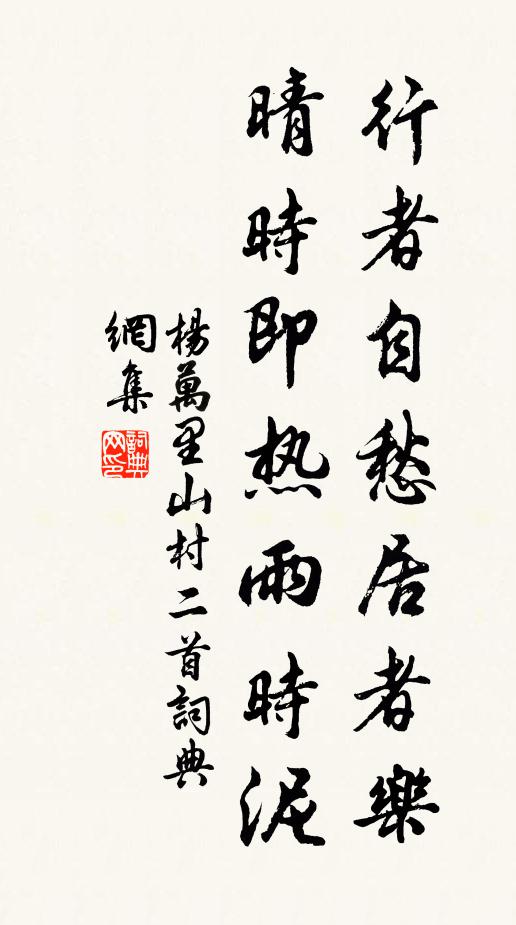 行者自愁居者樂
晴時即热雨時泥
楊萬里山村二首詞典
網集
詞典网印